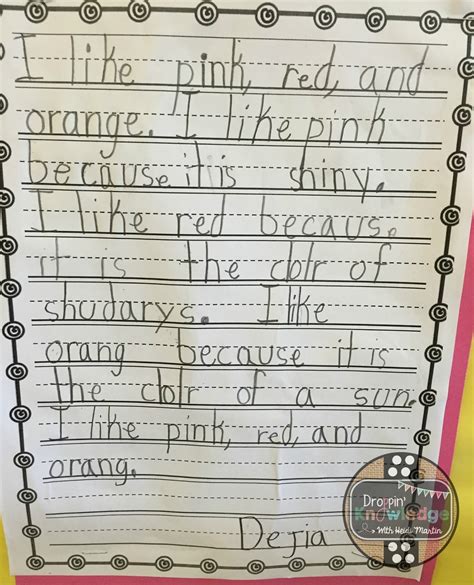 I like pink, red, and
orange. I like pink
because it is shiny.
I like red becaus.
it is the clolr of
shudarys. I like
orang because it is
the clolr of a sun.
I like pink, red, and
orang.
Dejia
Droppin'
Knowledge
With Heidi Martin